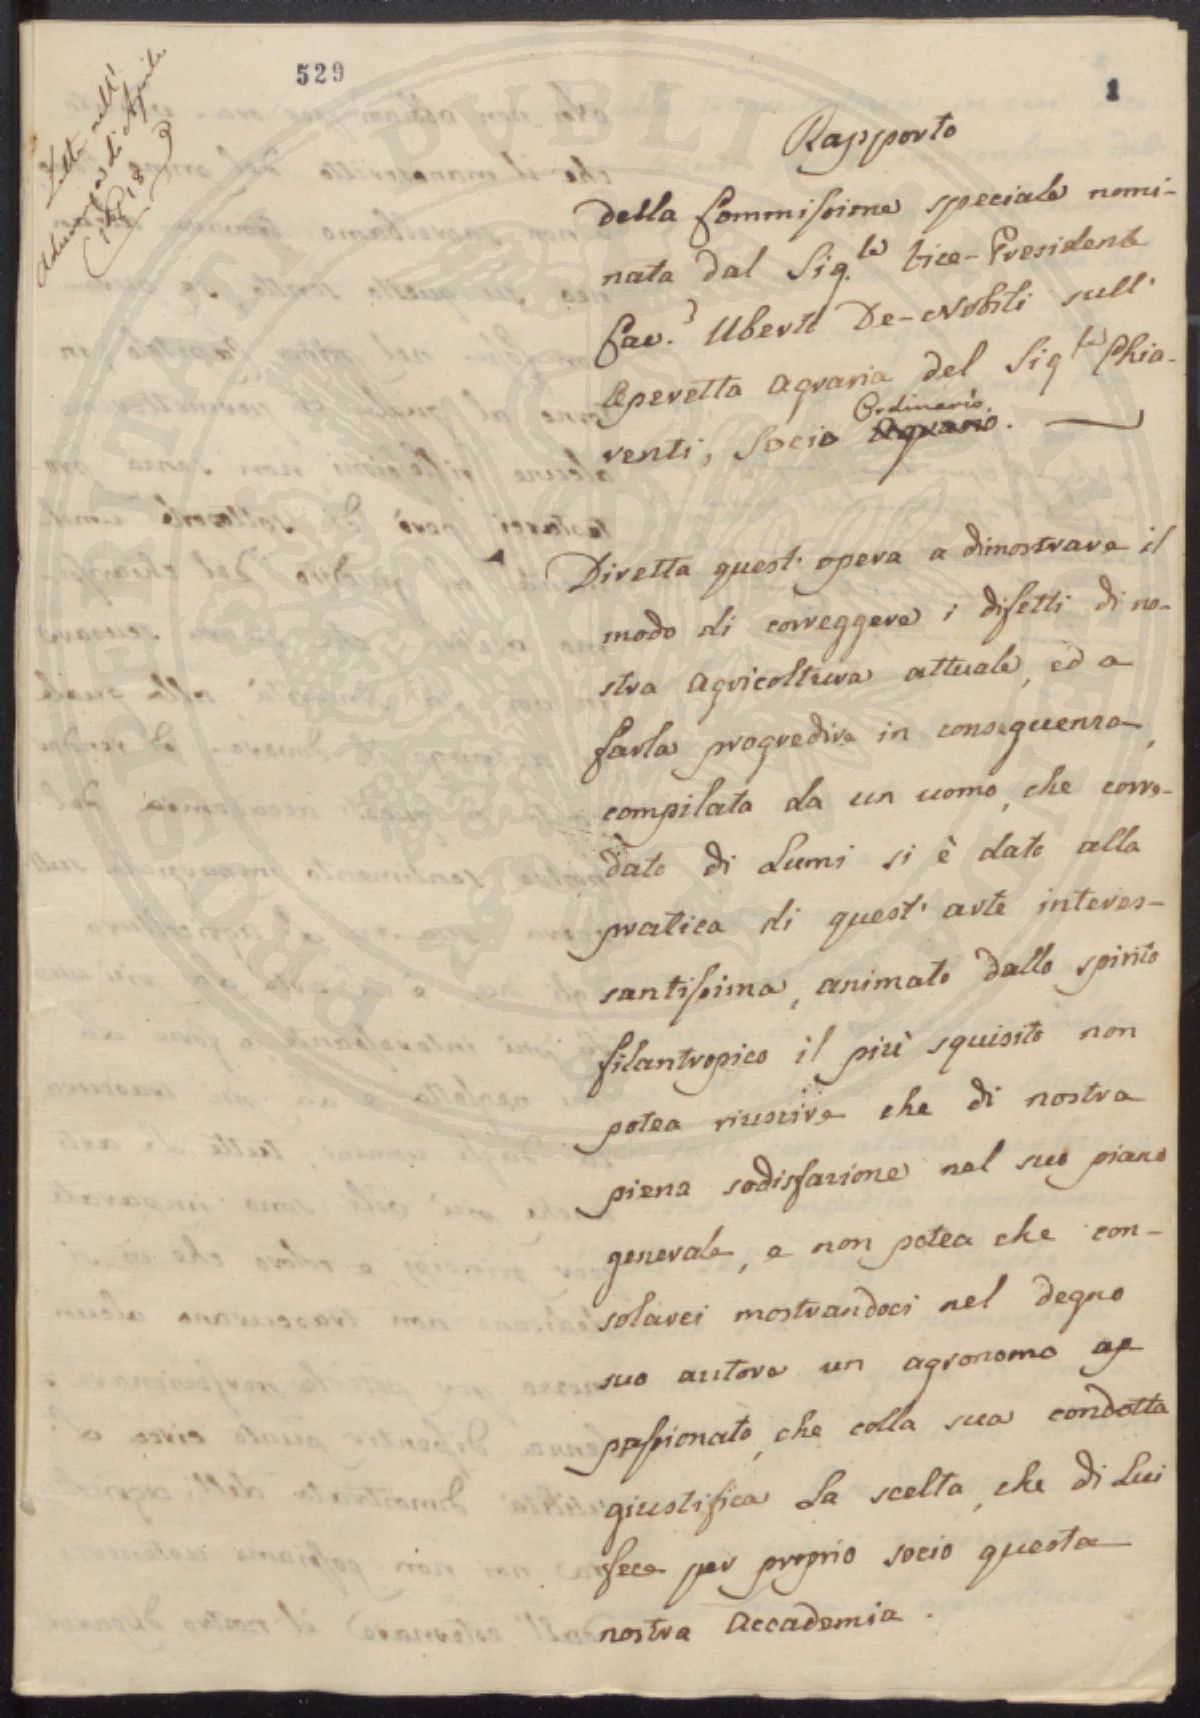 529
1
Letta nell'
adunanza di Aprile
18
Rapporto
della Commissione speciale nomi-
nata dal Sig.re Vice-Presidente
Cav.e Uberto De-Nobili sull'
Operetta agraria del Sig.re Chia-
renti, Socio Agrario. Ordinario.
Diretta quest' opera a dimostrare il
modo di correggere i difetti di no-
stra Agricoltura attuale, ed a
farla progredire in conseguenza,
compilata da un uomo, che corre-
dato di Lumi si è dato alla
pratica di quest' arte interes-
santissima, animato dallo spirito
filantropico il più squisito non
potea riuscire che di nostra
piena sodisfazione nel suo piano
generale, e non potea che con-
solarci mostrandoci nel degno
suo autore un agronomo ap-
passionato, che colla sua condotta
giustifica La scelta, che di Lui
fece per proprio socio questa
nostra Accademia.